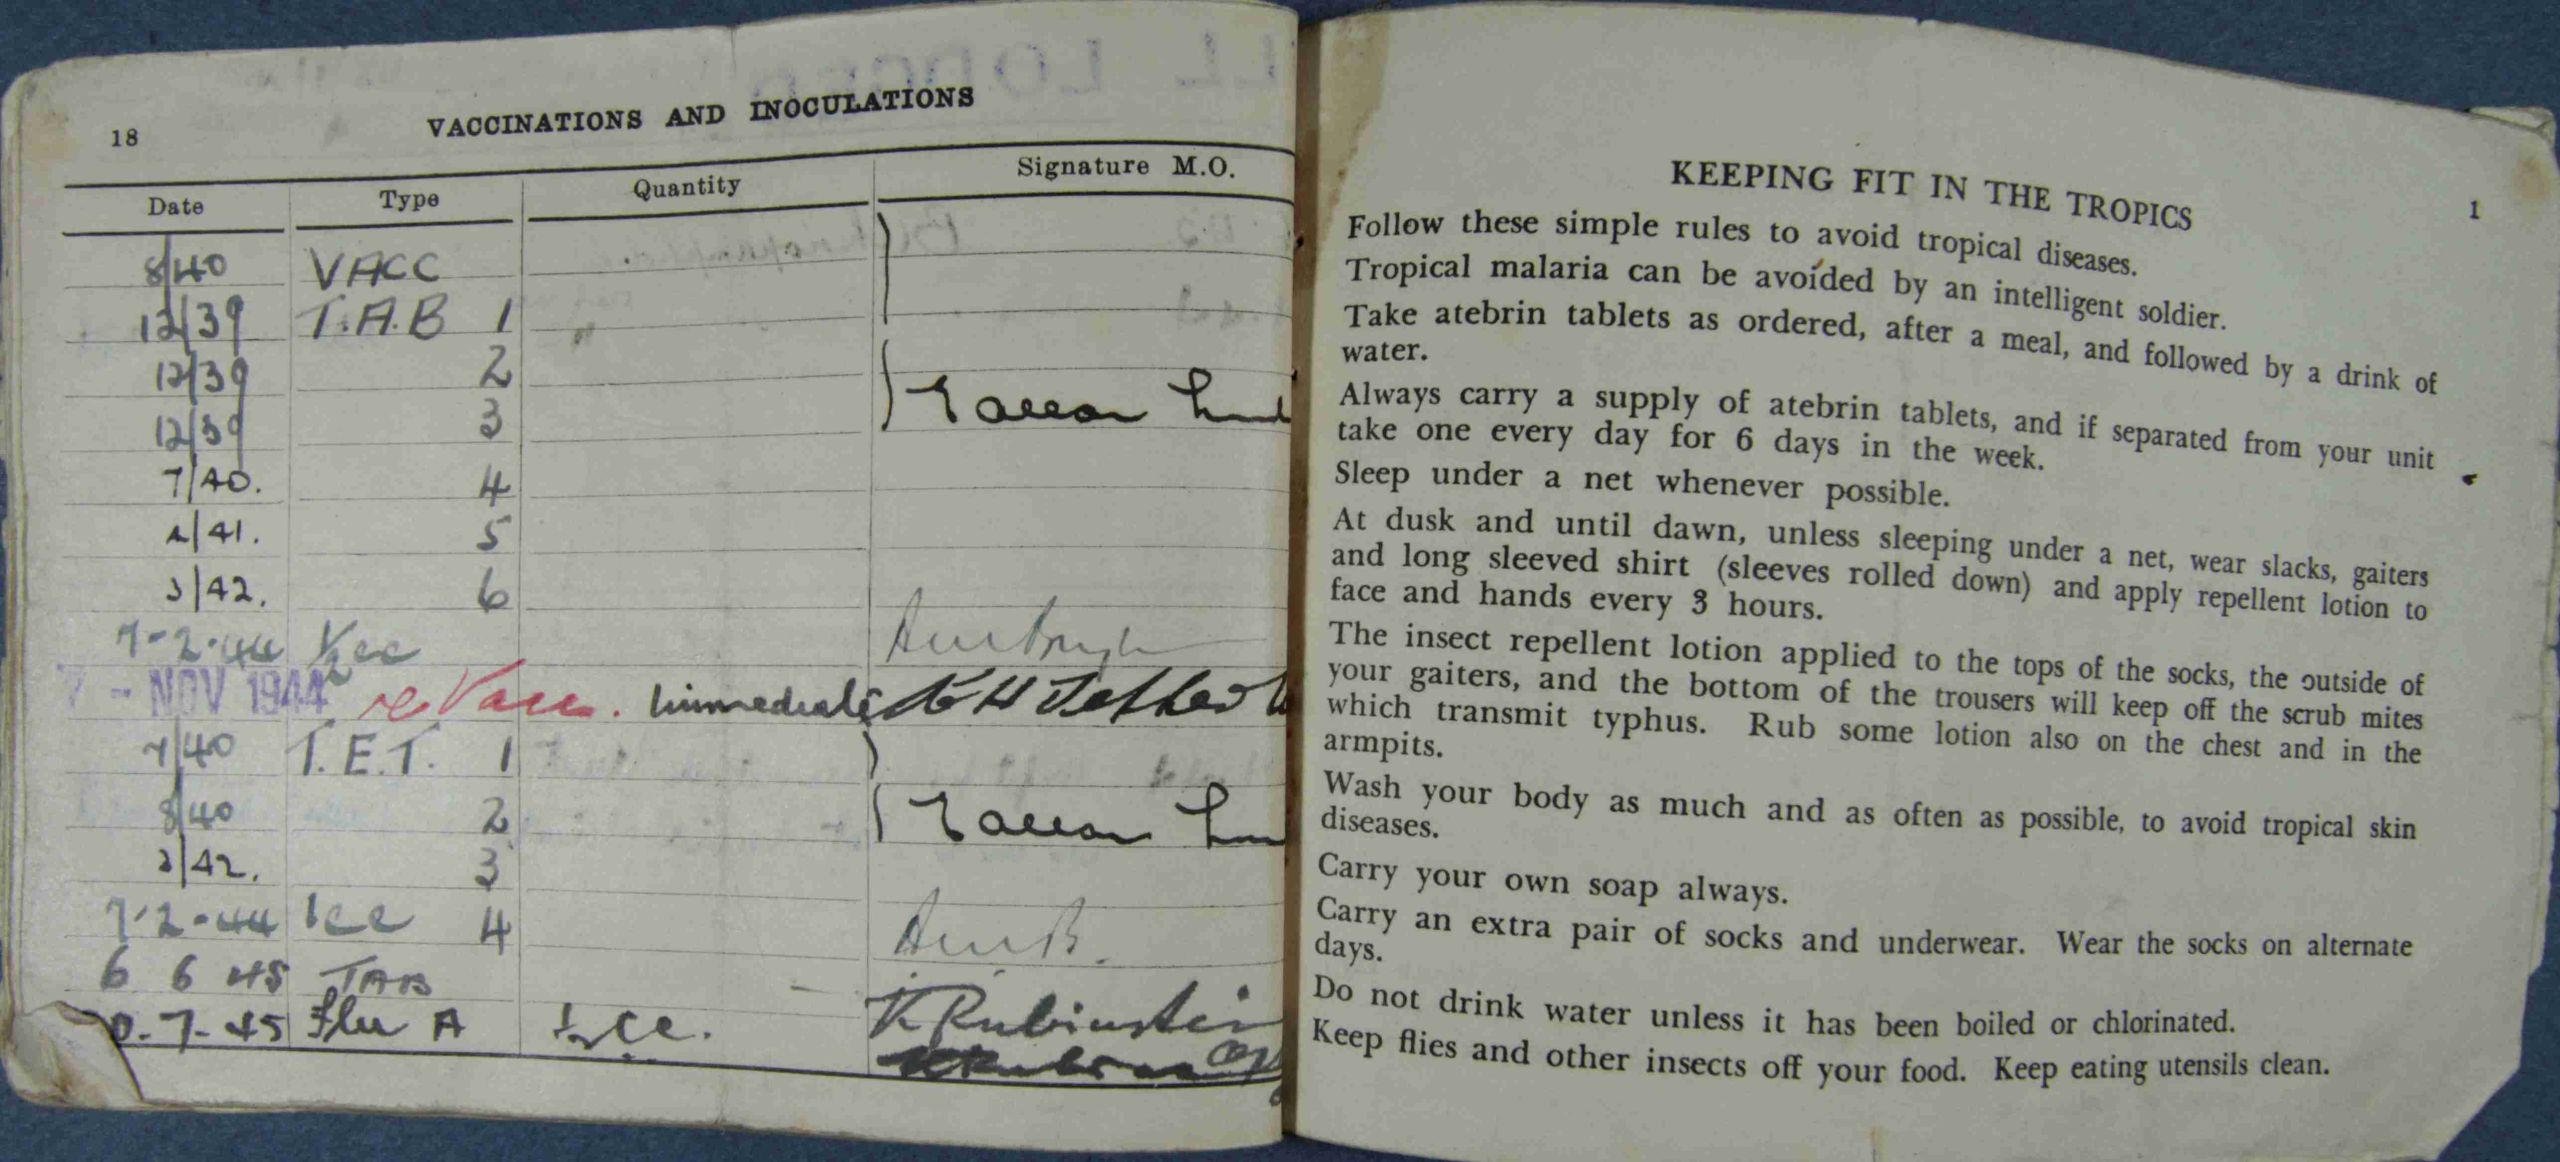 18
VACCINATIONS AND INOCULATIONS
Date Type Quantity Signature M.O.
8/40 VACC
12/39 T.A.B 1
12/39 2
12/39 3
7/40. 4
/41. 5
3/42. 6
7-2-44 ½cc
7 - NOV 1944 re Vacc. Immediate
7/40 T.E.T. 1
8/40 2
3/42. 3
7-2-44 1cc 4
6 6 45 TAB K Rubinstein
0-7-45 Flu A 1/2 cc.
1
KEEPING FIT IN THE TROPICS
Follow these simple rules to avoid tropical diseases.
Tropical malaria can be avoided by an intelligent soldier.
Take atebrin tablets as ordered, after a meal, and followed by a drink of
water.
Always carry a supply of atebrin tablets, and if separated from your unit
take one every day for 6 days in the week.
Sleep under a net whenever possible.
At dusk and until dawn, unless sleeping under a net, wear slacks, gaiters
and long sleeved shirt (sleeves rolled down) and apply repellent lotion to
face and hands every 3 hours.
The insect repellent lotion applied to the tops of the socks, the outside of
your gaiters, and the bottom of the trousers will keep off the scrub mites
which transmit typhus. Rub some lotion also on the chest and in the
armpits.
Wash your body as much and as often as possible, to avoid tropical skin
diseases.
Carry your own soap always.
Carry an extra pair of socks and underwear. Wear the socks on alternate
days.
Do not drink water unless it has been boiled or chlorinated.
Keep flies and other insects off your food. Keep eating utensils clean.